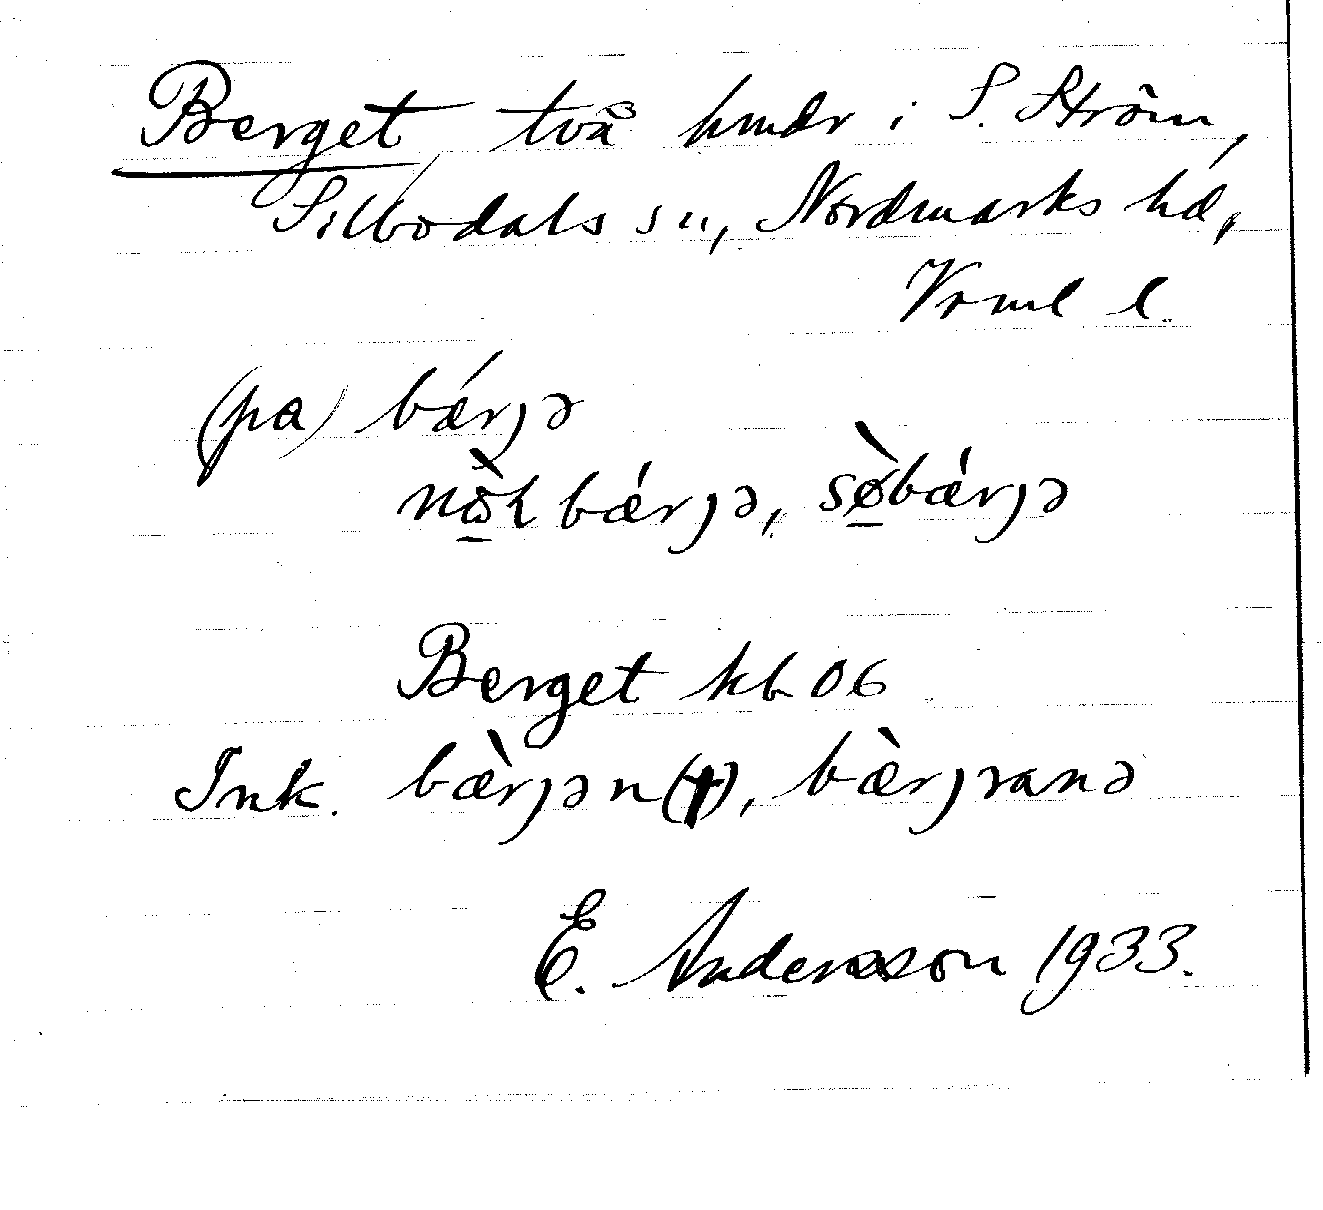 Berget två hmdr i S. Ström,
Silbodals sn, Nordmarks hd,
Vrml l.
(pa) bǽrȷə
nö̀k bǽrȷə, sø̀bǽrȷə
Berget kb 06
Ink. bæ̀rȷən(†), bæ̀rȷranə
E. Andersson 1933.